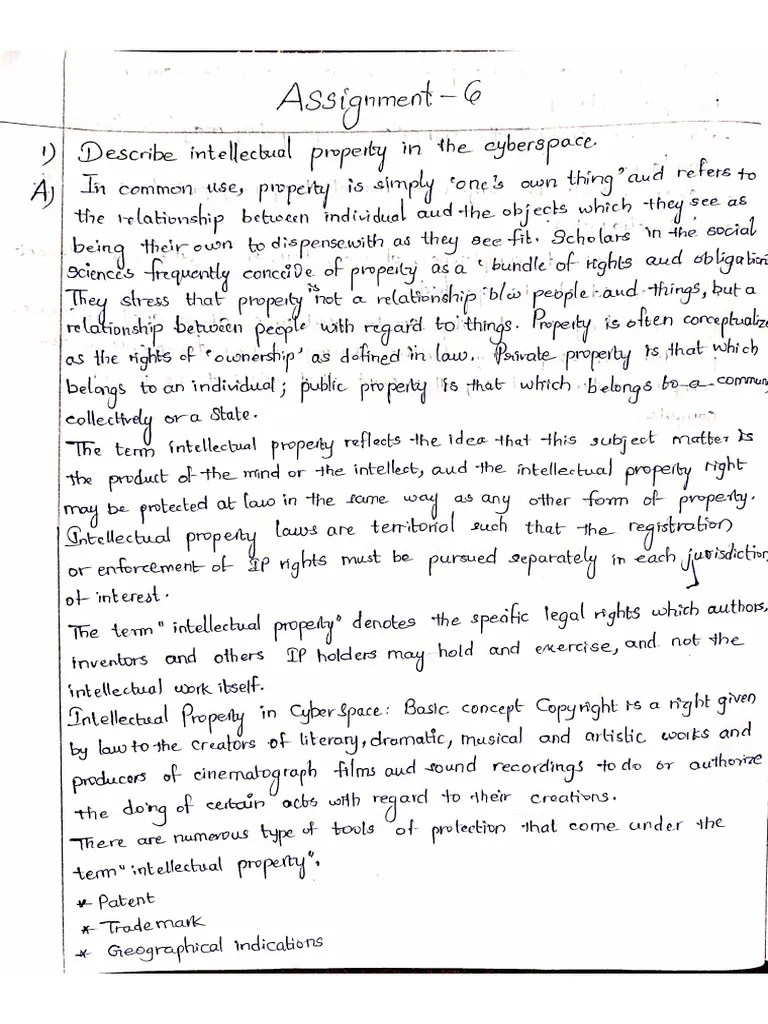 Assignment - 6
1) Describe intellectual property in the cyberspace.
A) In common use, property is simply 'one's own thing' and refers to
the relationship between individual and the objects which they see as
being their own to dispense with as they see fit. Scholars in the social
sciences frequently conceive of property as a 'bundle of rights and obligation
They stress that property is not a relationship b/w people and things, but a
relationship between people with regard to things. Property is often conceptualize
as the rights of 'ownership' as defined in law. Private property is that which
belongs to an individual; public property is that which belongs to a commun
collectively or a State.
The term intellectual property reflects the idea that this subject matter is
the product of the mind or the intellect, and the intellectual property right
may be protected at law in the same way as any other form of property.
Intellectual property laws are territorial such that the registration
or enforcement of IP rights must be pursued separately in each jurisdiction
of interest.
The term "intellectual property" denotes the specific legal rights which authors,
inventors and others IP holders may hold and exercise, and not the
intellectual work itself.
Intellectual Property in CyberSpace: Basic concept Copyright is a right given
by law to the creators of literary, dramatic, musical and artistic works and
producers of cinematograph films and sound recordings to do or authorize
the doing of certain acts with regard to their creations.
There are numerous type of tools of protection that come under the
term "intellectual property".
* Patent
* Trademark
* Geographical indications